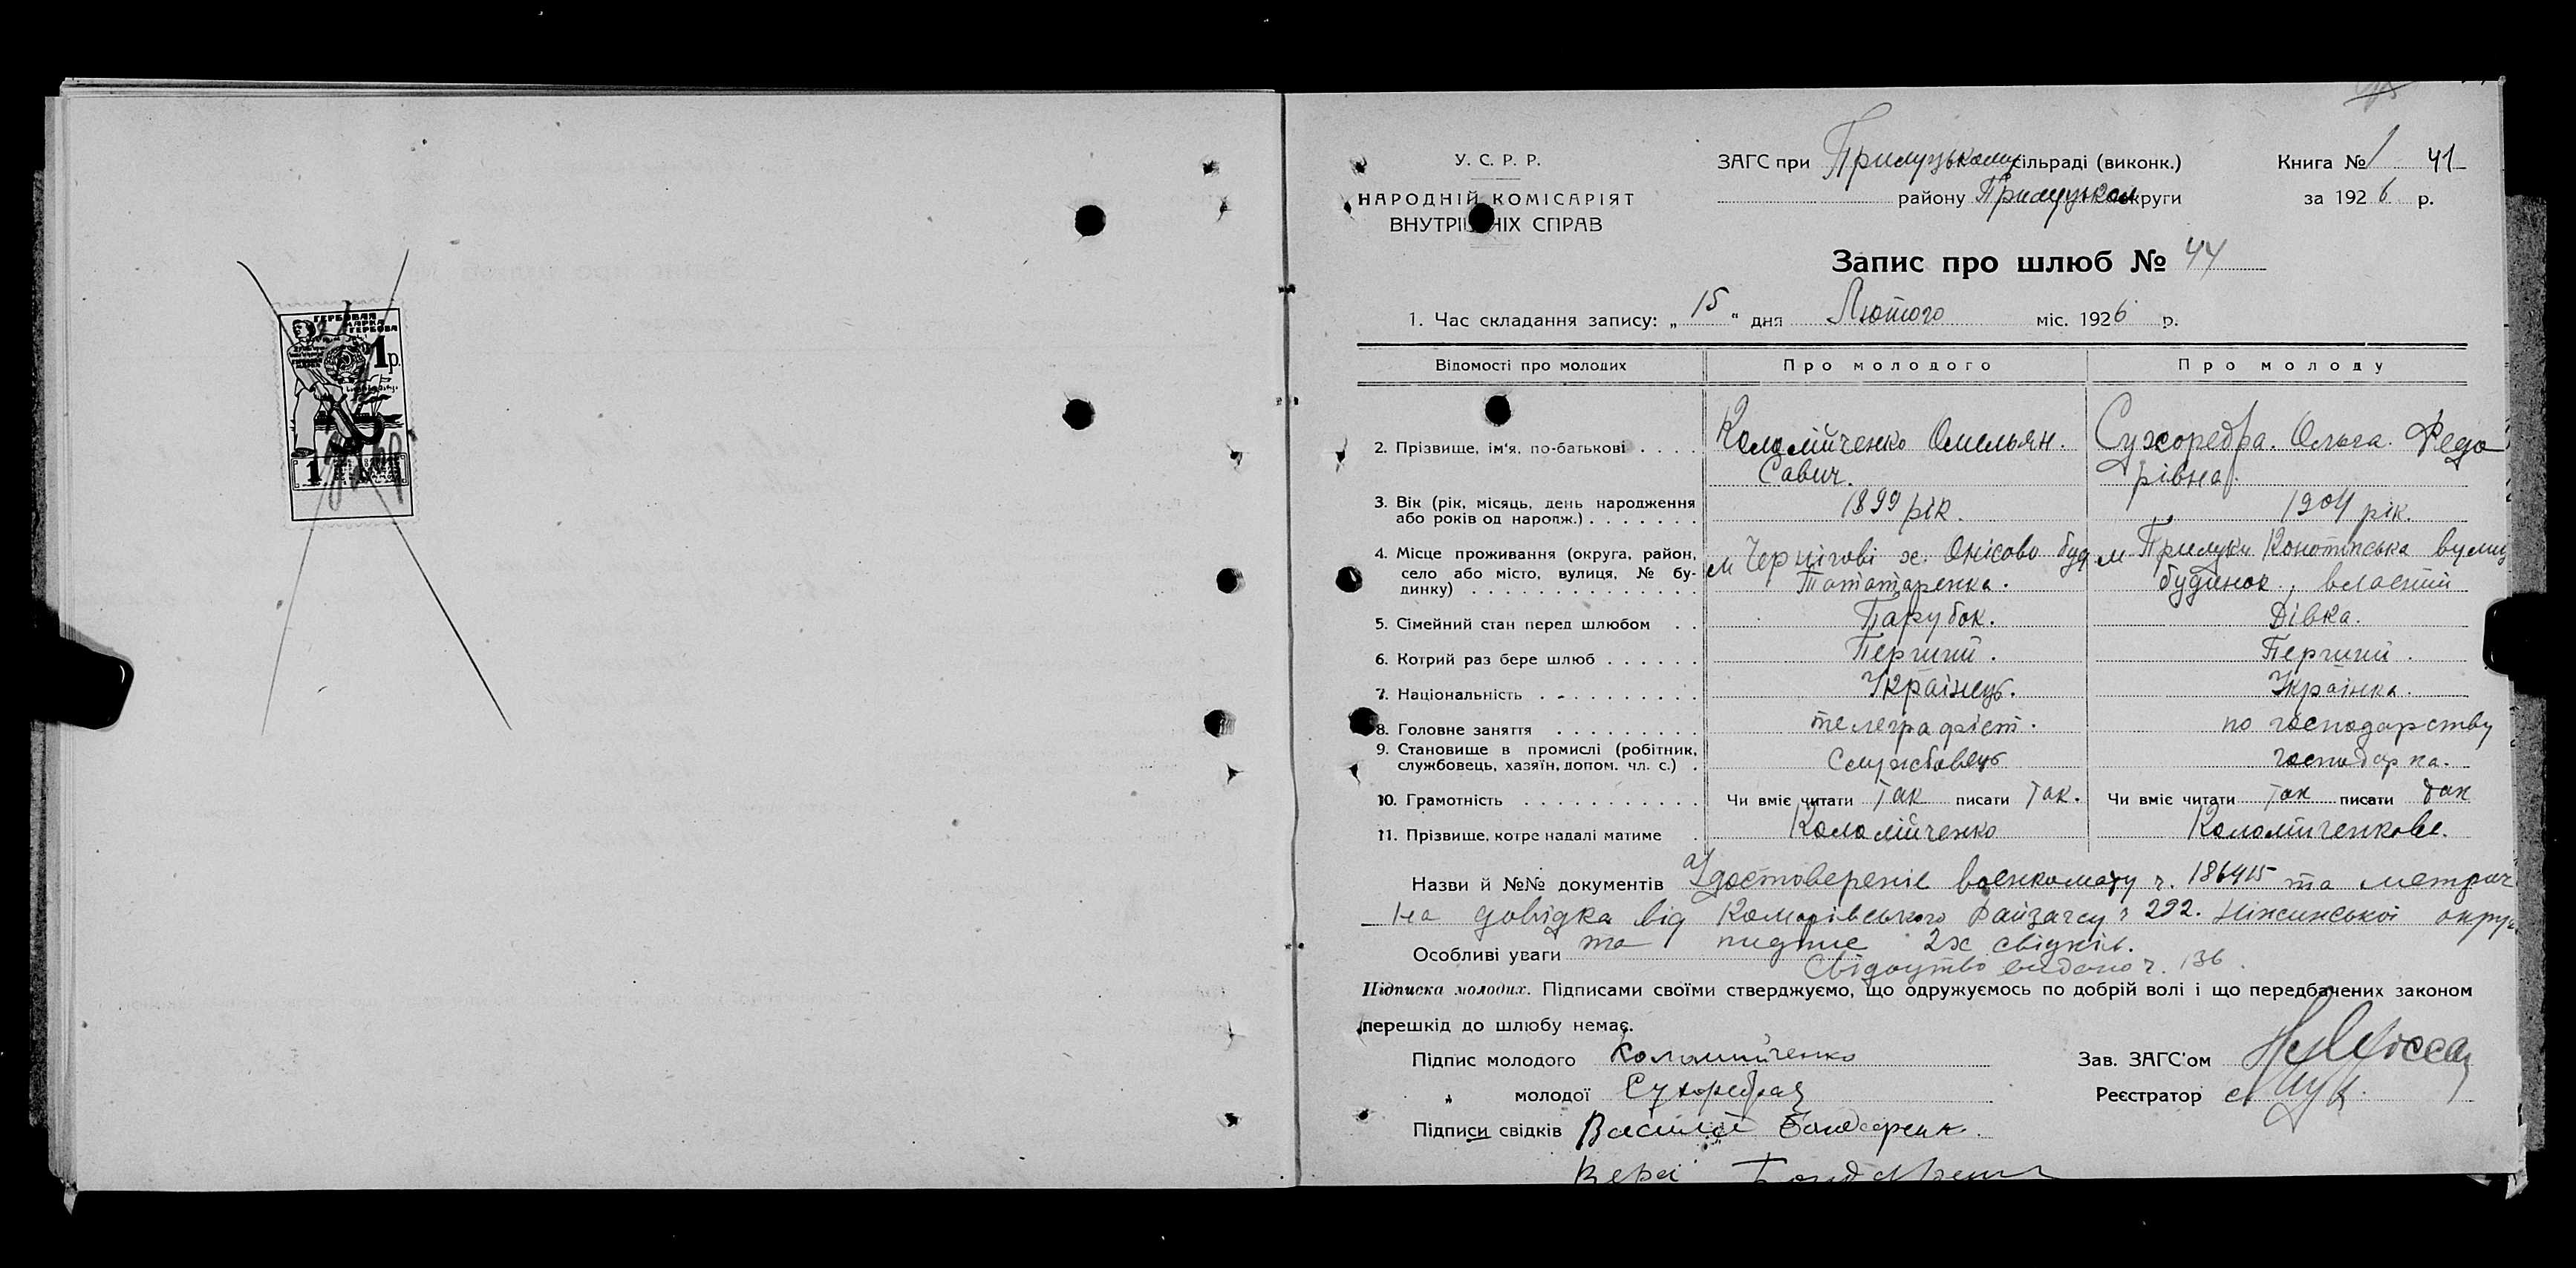 ГЕРБОВАЯ
МАРКА
ГЕРБОВА
1 р.
1
У. С. Р. Р.
НАРОДНІЙ КОМІСАРІЯТ
ВНУТРІШНІХ СПРАВ
ЗАГС при Прилуцькому сільраді (виконк.)
району Прилуцької округи
Книга № 1 41
за 1926 р.
Запис про шлюб № 44
1. Час складання запису: „15" дня Лютого міс. 1926 р.
Відомості про молодих Про молодого Про молоду
2. Прізвище, ім'я, по-батькові . . . . Коломійченко Омельян. Сухоребра. Ольга. Федо
Савич. рівна.
3. Вік (рік, місяць, день народження
або років од народж.) . . . . . . . 1899 рік. 1904 рік.
4. Місце проживання (округа, район,
село або місто, вулиця, № бу-
динку) . . . . . . . . . . . . . .
м Чернігові х. Онісово буд м Прилуки Конотіпська вулиц
Тататаренка. будинок, власний
5. Сімейний стан перед шлюбом . . Парубок. Дівка.
6. Котрий раз бере шлюб . . . . . . Перший. Перший.
7. Національність . . . . . . . . . . Українець. Українка.
8. Головне заняття . . . . . . . . . телеграфіст. по господарству
9. Становище в промислі (робітник,
службовець, хазяїн, допом. чл. с.) . Службовець господарка.
10. Грамотність . . . . . . . . . . . Чи вміє читати Так писати Так. Чи вміє читати Так писати Так
11. Прізвище, котре надалі матиме . Коломійченко Коломійченкове.
Назви й №№ документів Удостовереніе военкомату ч. 186415 та метрич
на довідка від Комарівського Райзагсу ч 292. Ніжинської округи
Особливі уваги та підпис 2х свідків.
Свідоцтво видано ч. 136.
Підписка молодих. Підписами своїми стверджуємо, що одружуємось по добрій волі і що передбачених законом
перешкід до шлюбу немає.
Підпис молодого Коломийченко Зав. ЗАГС'ом
„ молодої Сухоребрая Реєстратор
Підписи свідків Василий Бондаренк.
Вера Бондаренк